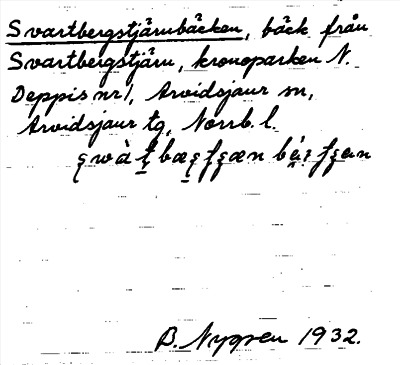 Svartbergstjärnbäcken, bäck från
Svartbergstjärn, kronoparken N.
Deppis nr 1, Arvidsjaur sn,
Arvidsjaur tg, Norrb. l.
B. Nygren 1932.